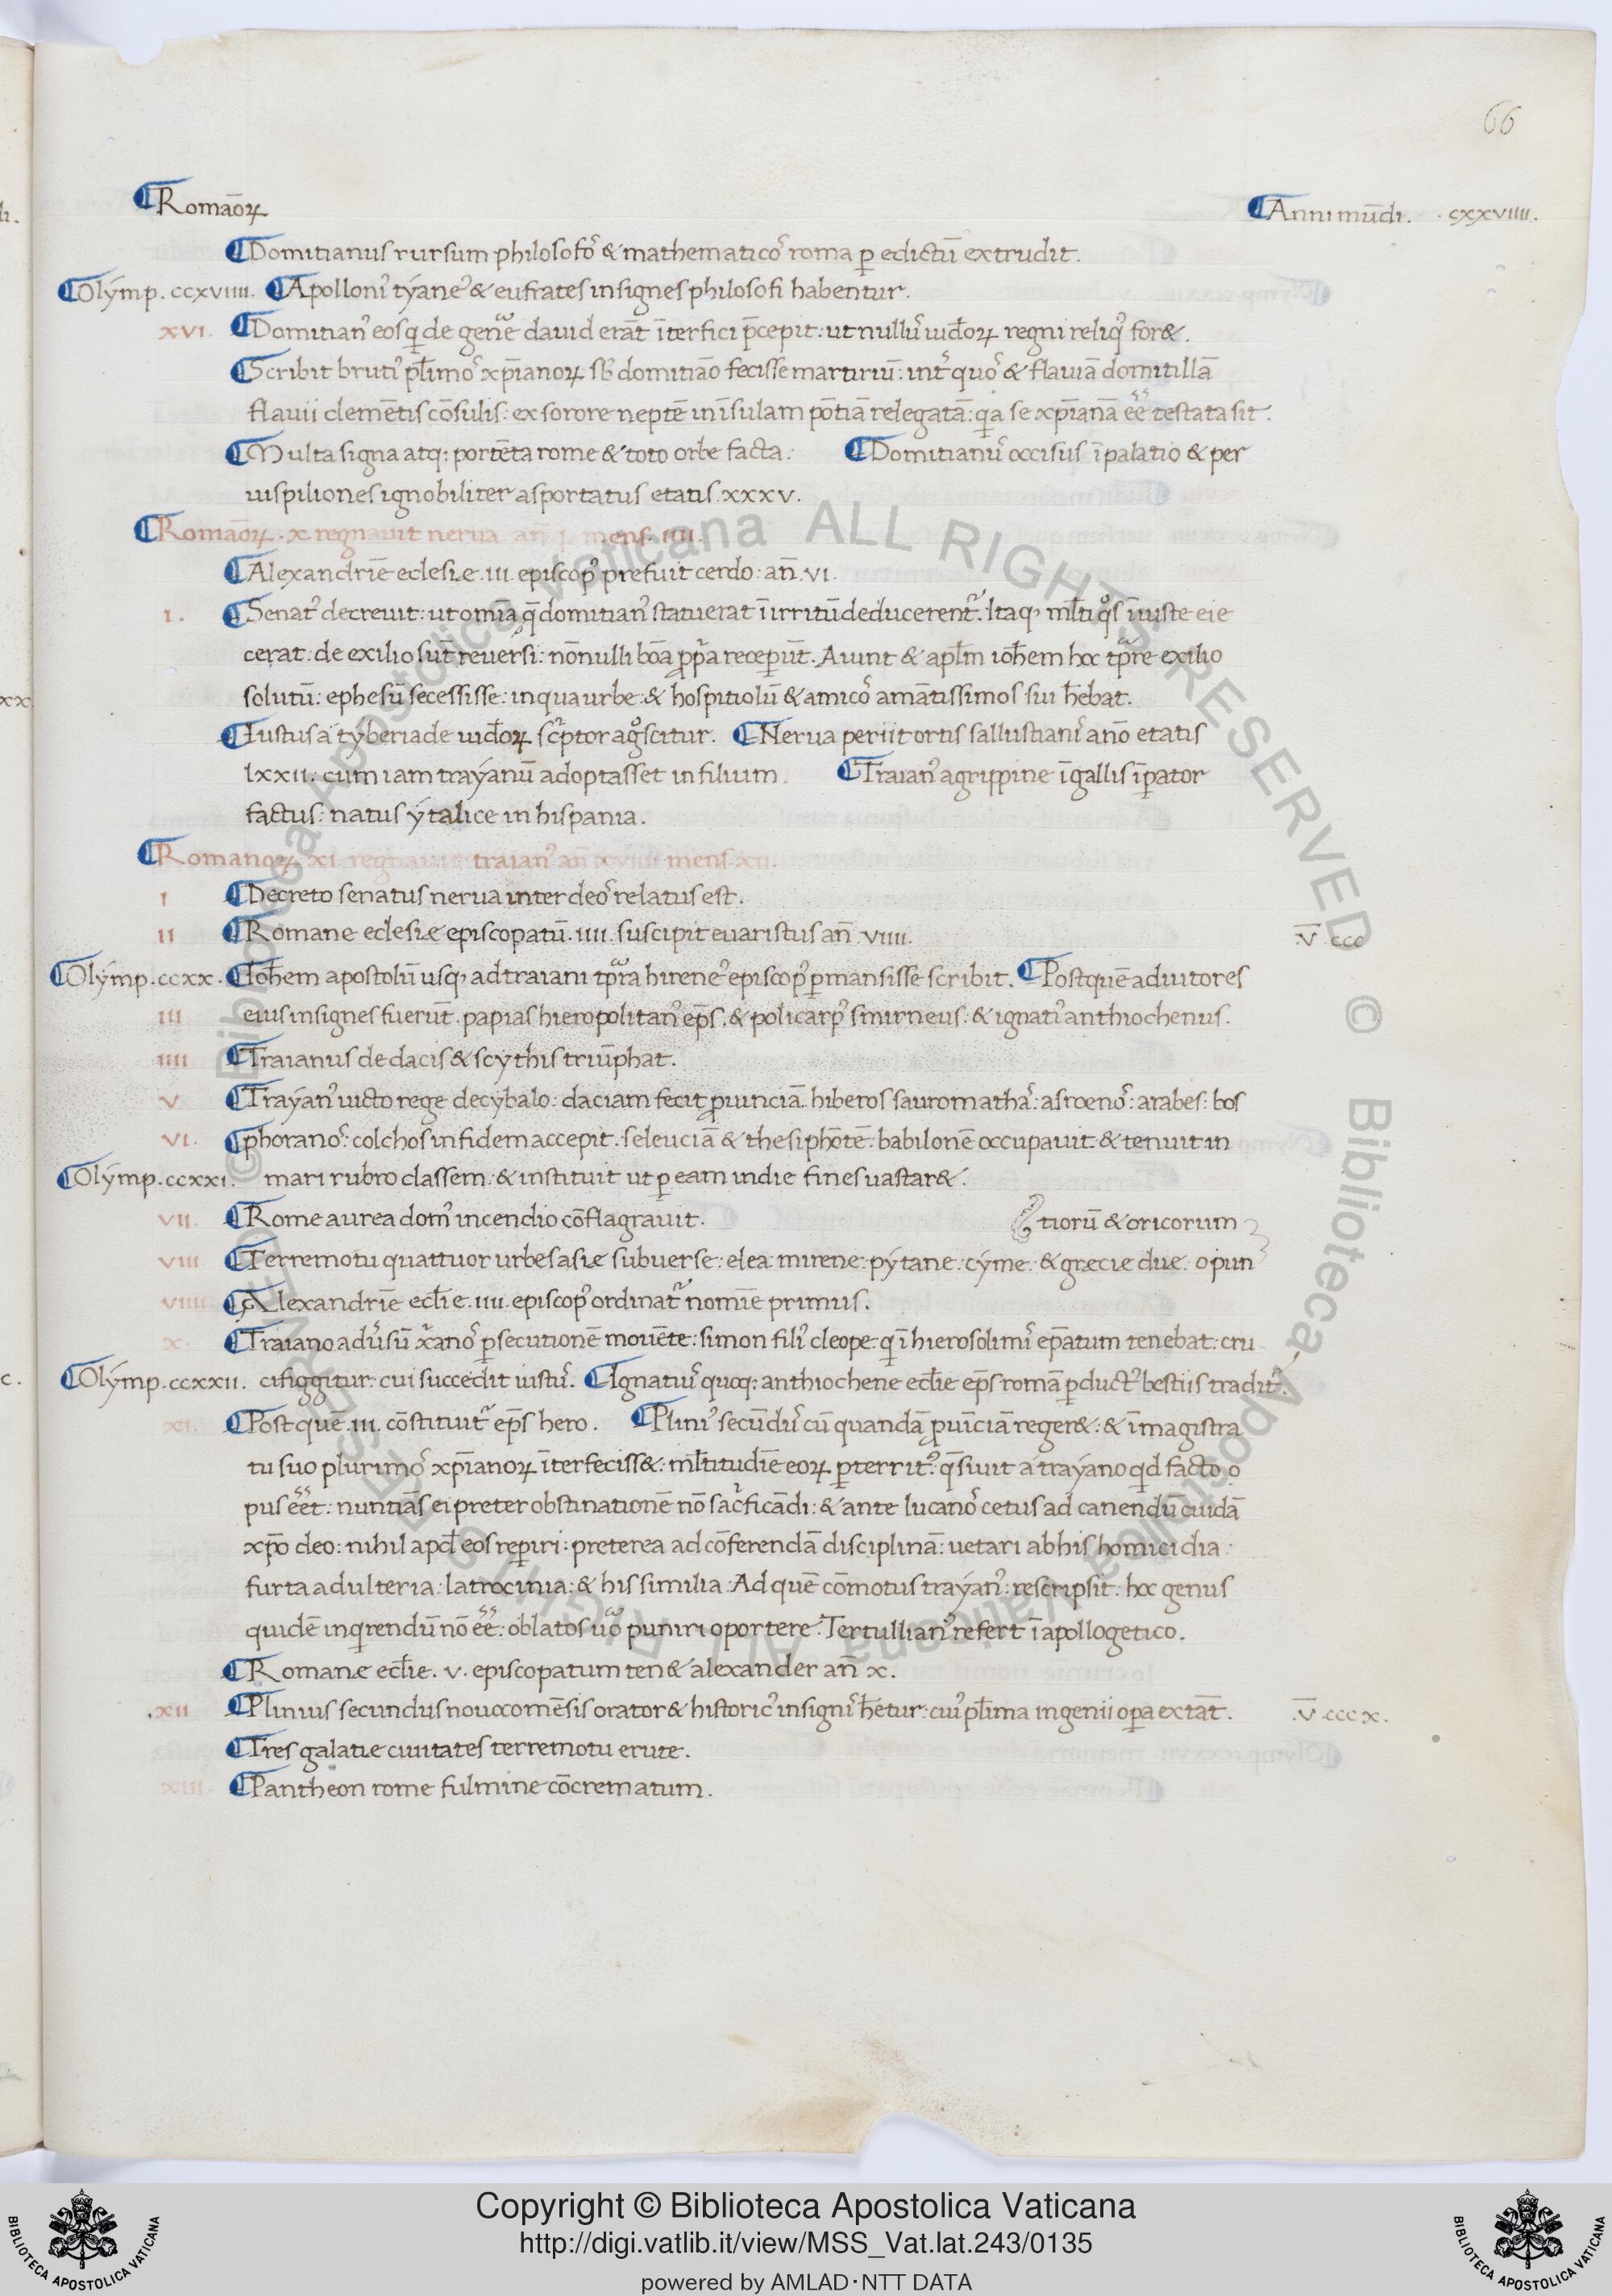 66
¶Romāoꝝ ¶Anni mūdi. . cxxviiii.
¶Domitianus rursum philosofoꝰ & mathematicoꝰ roma ꝑ edictū extrudit.
¶Olẏmp. ccxviiii. ¶Apolloniꝰ tẏaneꝰ & eufrates insignes philosofi habentur.
xvi. ¶Domitianꝰ eos q̇ de genͤe dauid erāt īterfici p̄cepit: ut nullꝰ iud̄oꝝ regni reliqꝰ for&.
¶Scribit brutiꝰ pl̄imoꝰ xp̄ianoꝝ sb̄ domitiāo fecisse martiriū: int̉ quoꝰ & flauiā domitillā
flauii clemētis cōsulis: ex sorore neptē in īsulam pōtiā relegatā: q̇a se xp̄ianā ēē testata sit.
¶Multa signa atq; portēta rome & toto orbe facta. ¶Domitianꝰ occisus ī palatio & per
uispiliones ignobiliter asportatus etatis xxxv.
¶Romāoꝝ . x regnauit nerua an̄ j. mens. iiii.
¶Alexandriē eclesie. iii. episcopꝰ prefuit cerdo: an̄ vi.
i. ¶Senatꝰ decreuit: ut om̄ia q̄ domitianꝰ statuerat ī irritū deducerentͬ. Itaq; ml̄ti qͦs īiuste eie
cerat: de exilio sūt reuersi: nōnulli bōa ꝓp̉a receperūt. Aiunt & apl̄m ioh̄em hoc tp̄re exilio
solutū: ephesū secessisse: in qua urbe: & hospitiolū & amicoꝰ amātissimos sui h̄ebat.
¶Iustus a tẏberiade iud̄oꝝ sc̉ptor agͦscitur. ¶Nerua periit ortis sallustianiꝰ anō etatis
lxxii: cum iam traẏanū adoptasset in filium. ¶Traianꝰ agrippine ī gallis īꝑator
factus: natus ẏtalice in hispania.
¶Romanoꝝ xi regnauit traianꝰ an̄ xviiii mens. xii.
i ¶Decreto senatus nerua inter deoꝰ relatus est.
ii ¶Romane eclesie episcopatū. iiii. suscipit euaristus an̄ viiii. .v̄. ccc
¶Olẏmp. ccxx. ¶Ioh̄em apostolū usq; ad traiani tp̄ra hireneꝰ episcopꝰ ꝑmansisse scribit. ¶Post quē aduitores
iii eius insignes fuerūt. papias hieropolitanꝰ ep̄s. & policarpꝰ smirneus: & ignatiꝰ anthiochenus.
iiii ¶Traianus de dacis & scythis triūphat.
v ¶Traẏanꝰ uicto rege decẏbalo: daciam fecit ꝓuinciā. hiberos sauromathaꝰ: asroenoꝰ: arabes: bos
vi. ¶phoranoꝰ: colchos in fidem accepit. seleuciā & thesiphōtē: babilonē occupauit & tenuit in
¶Olẏmp. ccxxi. mari rubro classem: & instituit ut ꝑ eam indie fines uastar&.
vii. ¶Rome aurea domꝰ incendio cōflagrauit. tiorū & oricorum
viii ¶Terremotu quattuor urbes asie subuerse: elea: mirene: pẏtane: cẏme: & grecie due. opun
viiii ¶Alexandriē ecl̄ie. iiii. episcopꝰ ordinatͬ nomīe primus.
x. ¶Traiano aduꝰsū xͬanoꝰ ꝑsecutionē mouēte: simon filiꝰ cleope: q̇ ī hierosolimiꝰ ep̄atum tenebat: cru
¶Olẏmp. ccxxii. cifiggitur: cui succedit iustꝰ. ¶Ignatiꝰ quoq; anthiochene ecl̄ie ep̄s romā ꝑductꝰ bestiis traditͬ.
xi. ¶Post quē. iii. cōstituitͬ ep̄s hero. ¶Pliniꝰ secūdꝰ cū quandā ꝓuīciā reger&: & ī magistra
tu suo plurimoꝰ xp̄ianoꝝ īterfeciss&: ml̄titudīe eoꝝ ꝑterritꝰ: q̄siuit a traẏano qͥd facto o
pus ēēt: nuntiās ei preter obstinationē nō sac̉ficādi: & ante lucanoꝰ cetus ad canendū cuidā
xp̄o deo: nihil apd̄ eos reperiri: preterea ad cōferendā disciplinā: uetari ab his homicidia:
furta adulteria: latrocinia: & his similia. Ad quē cōmotus traẏanꝰ: rescripsit: hoc genus
quidē inq̇rendū nō ēē: oblatos uͦo puniri oportere. Tertullianꝰ refert ī apollogetico.
¶Romane ecl̄ie. v. episcopatum ten& alexander an̄ x.
.xii ¶Plinius secundus nouocomēsis orator & historicꝰ insigniꝰ h̄etur: cuiꝰ pl̄ima ingenii oꝑa extāt. .v̄. ccc x.
¶Tres galatie ciuitates terremotu erute.
xiii. ¶Pantheon rome fulmine cōcrematum.
Copyright © Biblioteca Apostolica Vaticana
http://digi.vatlib.it/view/MSS_Vat.lat.243/0135
powered by AMLAD·NTT DATA